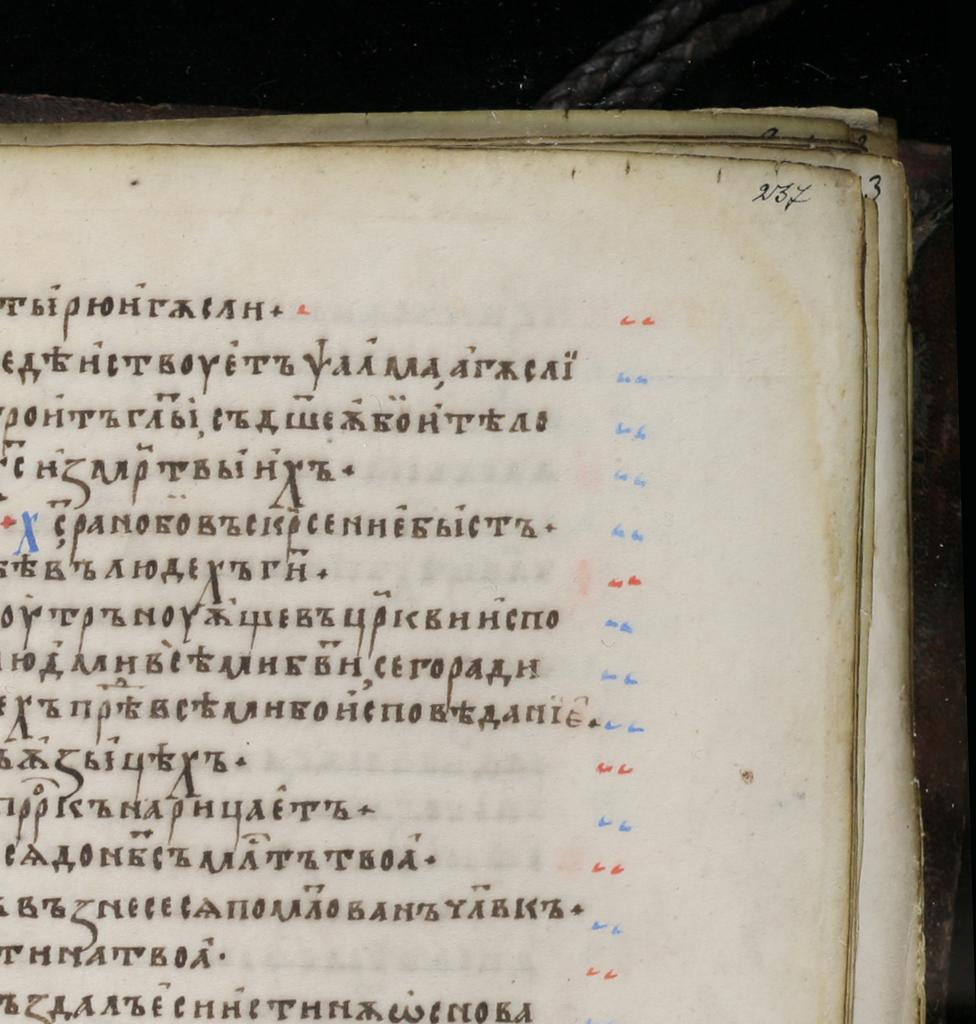 237
3
тырюи҆гѫсли·
едѣ́нствоуе҆тъ ѱал҆ма, а҆гѫслї
рои҆тъ гл҃ы, съд ш҃еѫ҆ бои҆тѣло
и҆змр҃твыи҆хъ·
х҃с рано бо въскр҃сенне бы́стъ·
бѣ въ людехъ г҃и·
оу҆тръноуѫ҆ще въ цр҃кви и҆спо
людми всѣми бв҃и, сего ради
ехъ прѣ всѣми бо и҆сповѣданїе·
ѫ҆зыцѣхъ·
прр҃къ нарица́етъ·
сѧ до нб҃съ мл҃тъ твоа҆·
възнесе сѧ помл҃ованъ чл҃вкъ·
тина твоа҆·
ъздалъ е҆си и҆стинѫ ѡ҆снова